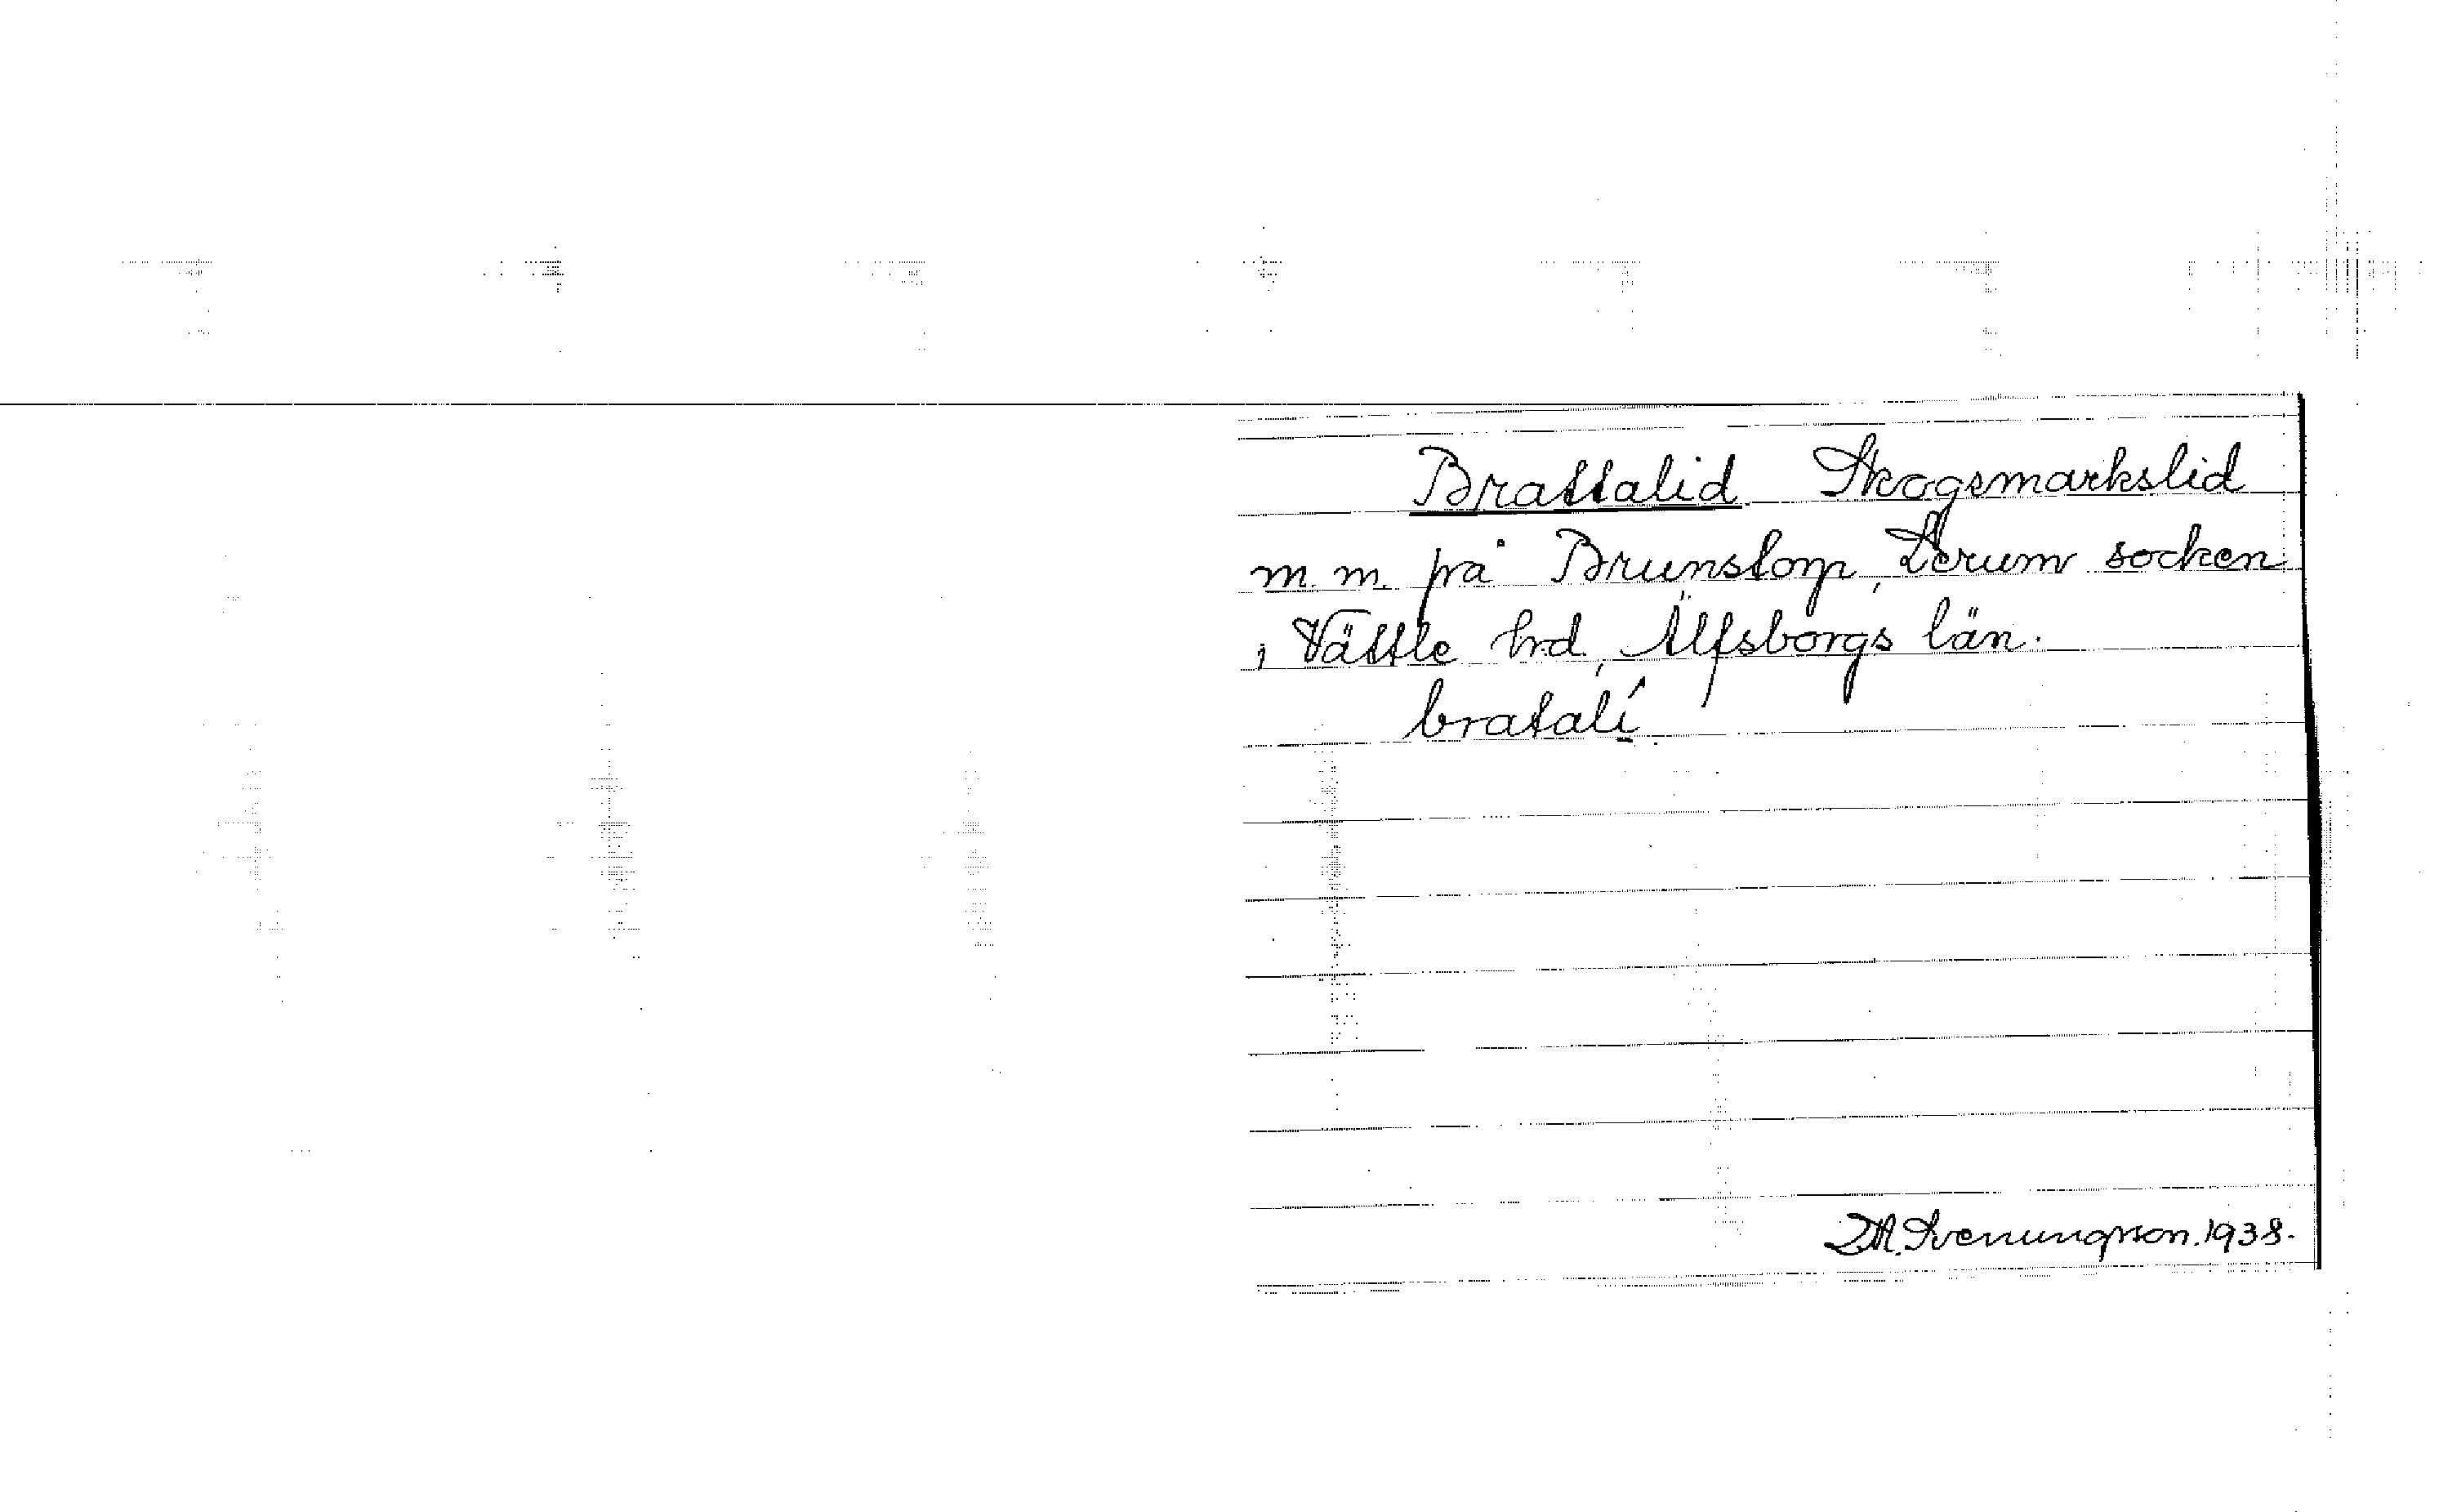 Brattalid Skogsmarkslid
m. m. på Brunstorp, Lerum socken
, Vättle hrd, Älfsborgs län.
bratalí.
M. Svenungsson. 1938.